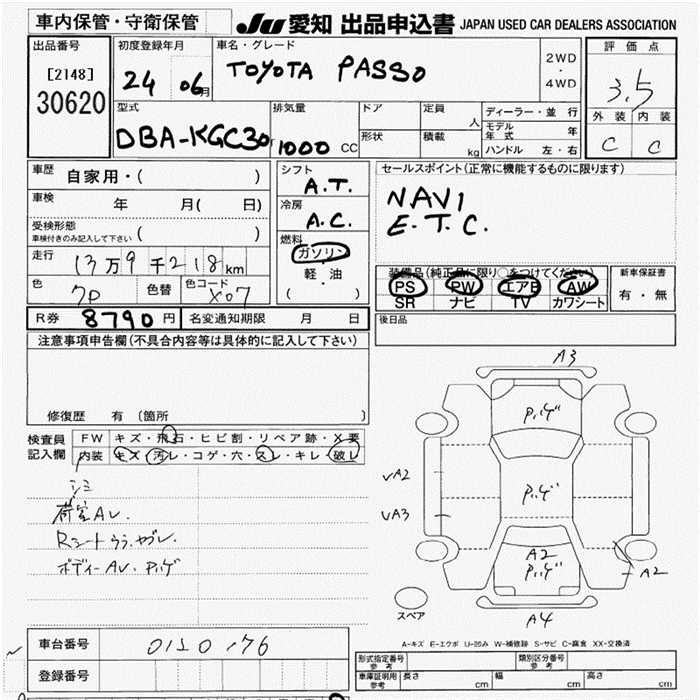 車内保管・守衛保管
JU 愛知 出品申込書 JAPAN USED CAR DEALERS ASSOCIATION
出品番号
[2148]
30620
初度登録年月
24 06月
車名・グレード
TOYOTA PASSO
2WD
・
4WD
評価点
3.5
外装 内装
C C
型式
DBA-KGC30
排気量
1000 CC
ドア
形状
定員
人
積載
kg
ディーラー・並行
モデル年式 年
ハンドル 左・右
車歴 自家用・( )
車検 年 月( 日)
受検形態
車検付きのみ記入して下さい ( )
走行 13万9千218km
色
色替
色コード
X07
シフト
A.T.
冷房
A.C.
燃料
ガソリン
軽・油
( )
セールスポイント(正常に機能するものに限ります)
NAVI
E.T.C.
装備品(純正品に限り○をつけてください)
PS PW エアB AW
SR ナビ TV カワシート
新車保証書
有・無
後日品
R券 8790円 名変通知期限 月 日
注意事項申告欄(不具合内容等は具体的に記入して下さい)
修復歴 有(箇所 )
検査員記入欄
FW キズ・飛石・ヒビ割・リペア跡・X要
内装 キズ・汚レ・コゲ・穴・スレ・キレ・破レ
シミ
荷室AV.
Rシートウラ、ヤブレ.
ボディーAV. P.ハゲ
A3
P.ハゲ
VA2
P.ハゲ
VA3
A2
P.ハゲ
A2
スペア
A4
A-キズ E-エクボ U-凹み W-補修跡 S-サビ C-腐食 XX-交換済
車台番号
登録番号
形式指定番号
参考
類別区分番号
参考
車庫証明用
参考
長さ cm 幅 cm 高さ cm